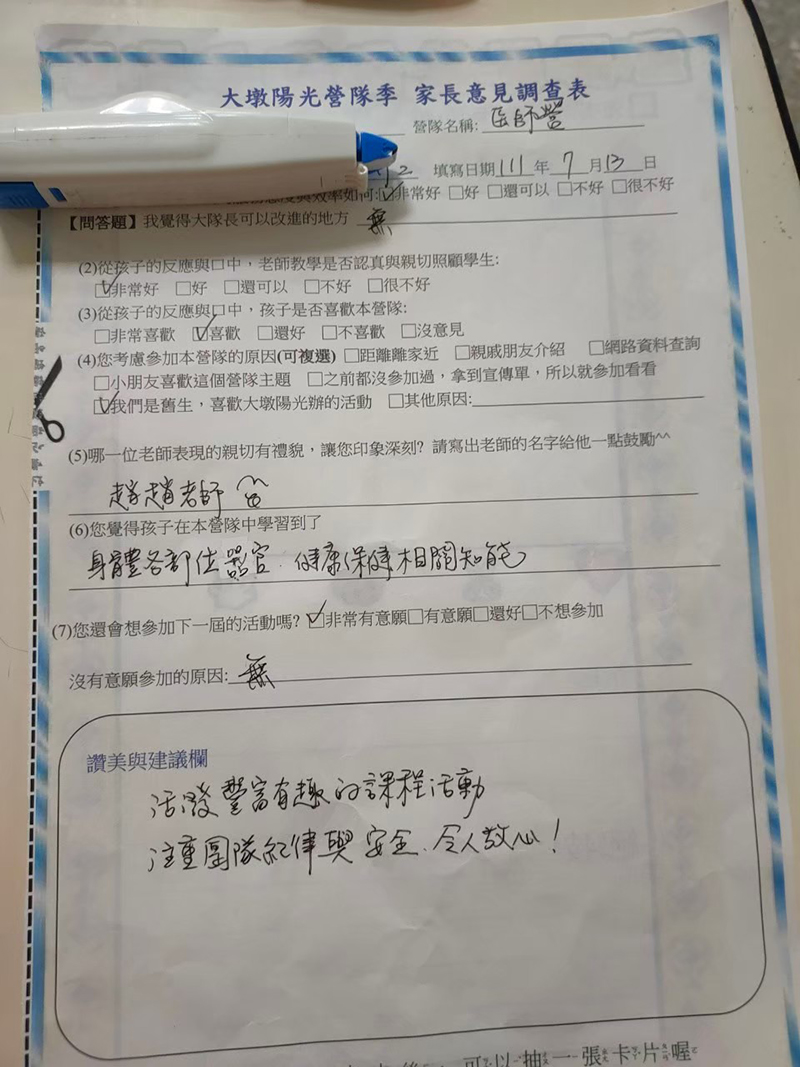 大墩陽光營隊季 家長意見調查表
營隊名稱: 医師營
填寫日期 111 年 7 月 13 日
度與效率如何: ☑非常好 □好 □還可以 □不好 □很不好
【問答題】我覺得大隊長可以改進的地方 無
(2)從孩子的反應與口中，老師教學是否認真與親切照顧學生:
☑非常好 □好 □還可以 □不好 □很不好
(3)從孩子的反應與口中，孩子是否喜歡本營隊:
□非常喜歡 ☑喜歡 □還好 □不喜歡 □沒意見
(4)您考慮參加本營隊的原因(可複選) □距離離家近 □親戚朋友介紹 □網路資料查詢
□小朋友喜歡這個營隊主題 □之前都沒參加過，拿到宣傳單，所以就參加看看
☑我們是舊生，喜歡大墩陽光辦的活動 □其他原因:
(5)哪一位老師表現的親切有禮貌，讓您印象深刻? 請寫出老師的名字給他一點鼓勵^^
趙趙老師
(6)您覺得孩子在本營隊中學習到了
身體各部位器官、健康保健相關知能
(7)您還會想參加下一屆的活動嗎? ☑非常有意願□有意願□還好□不想參加
沒有意願參加的原因: 無
讚美與建議欄
活潑豐富有趣的課程活動
注重團隊紀律與安全、令人放心！
可以抽一張卡片喔